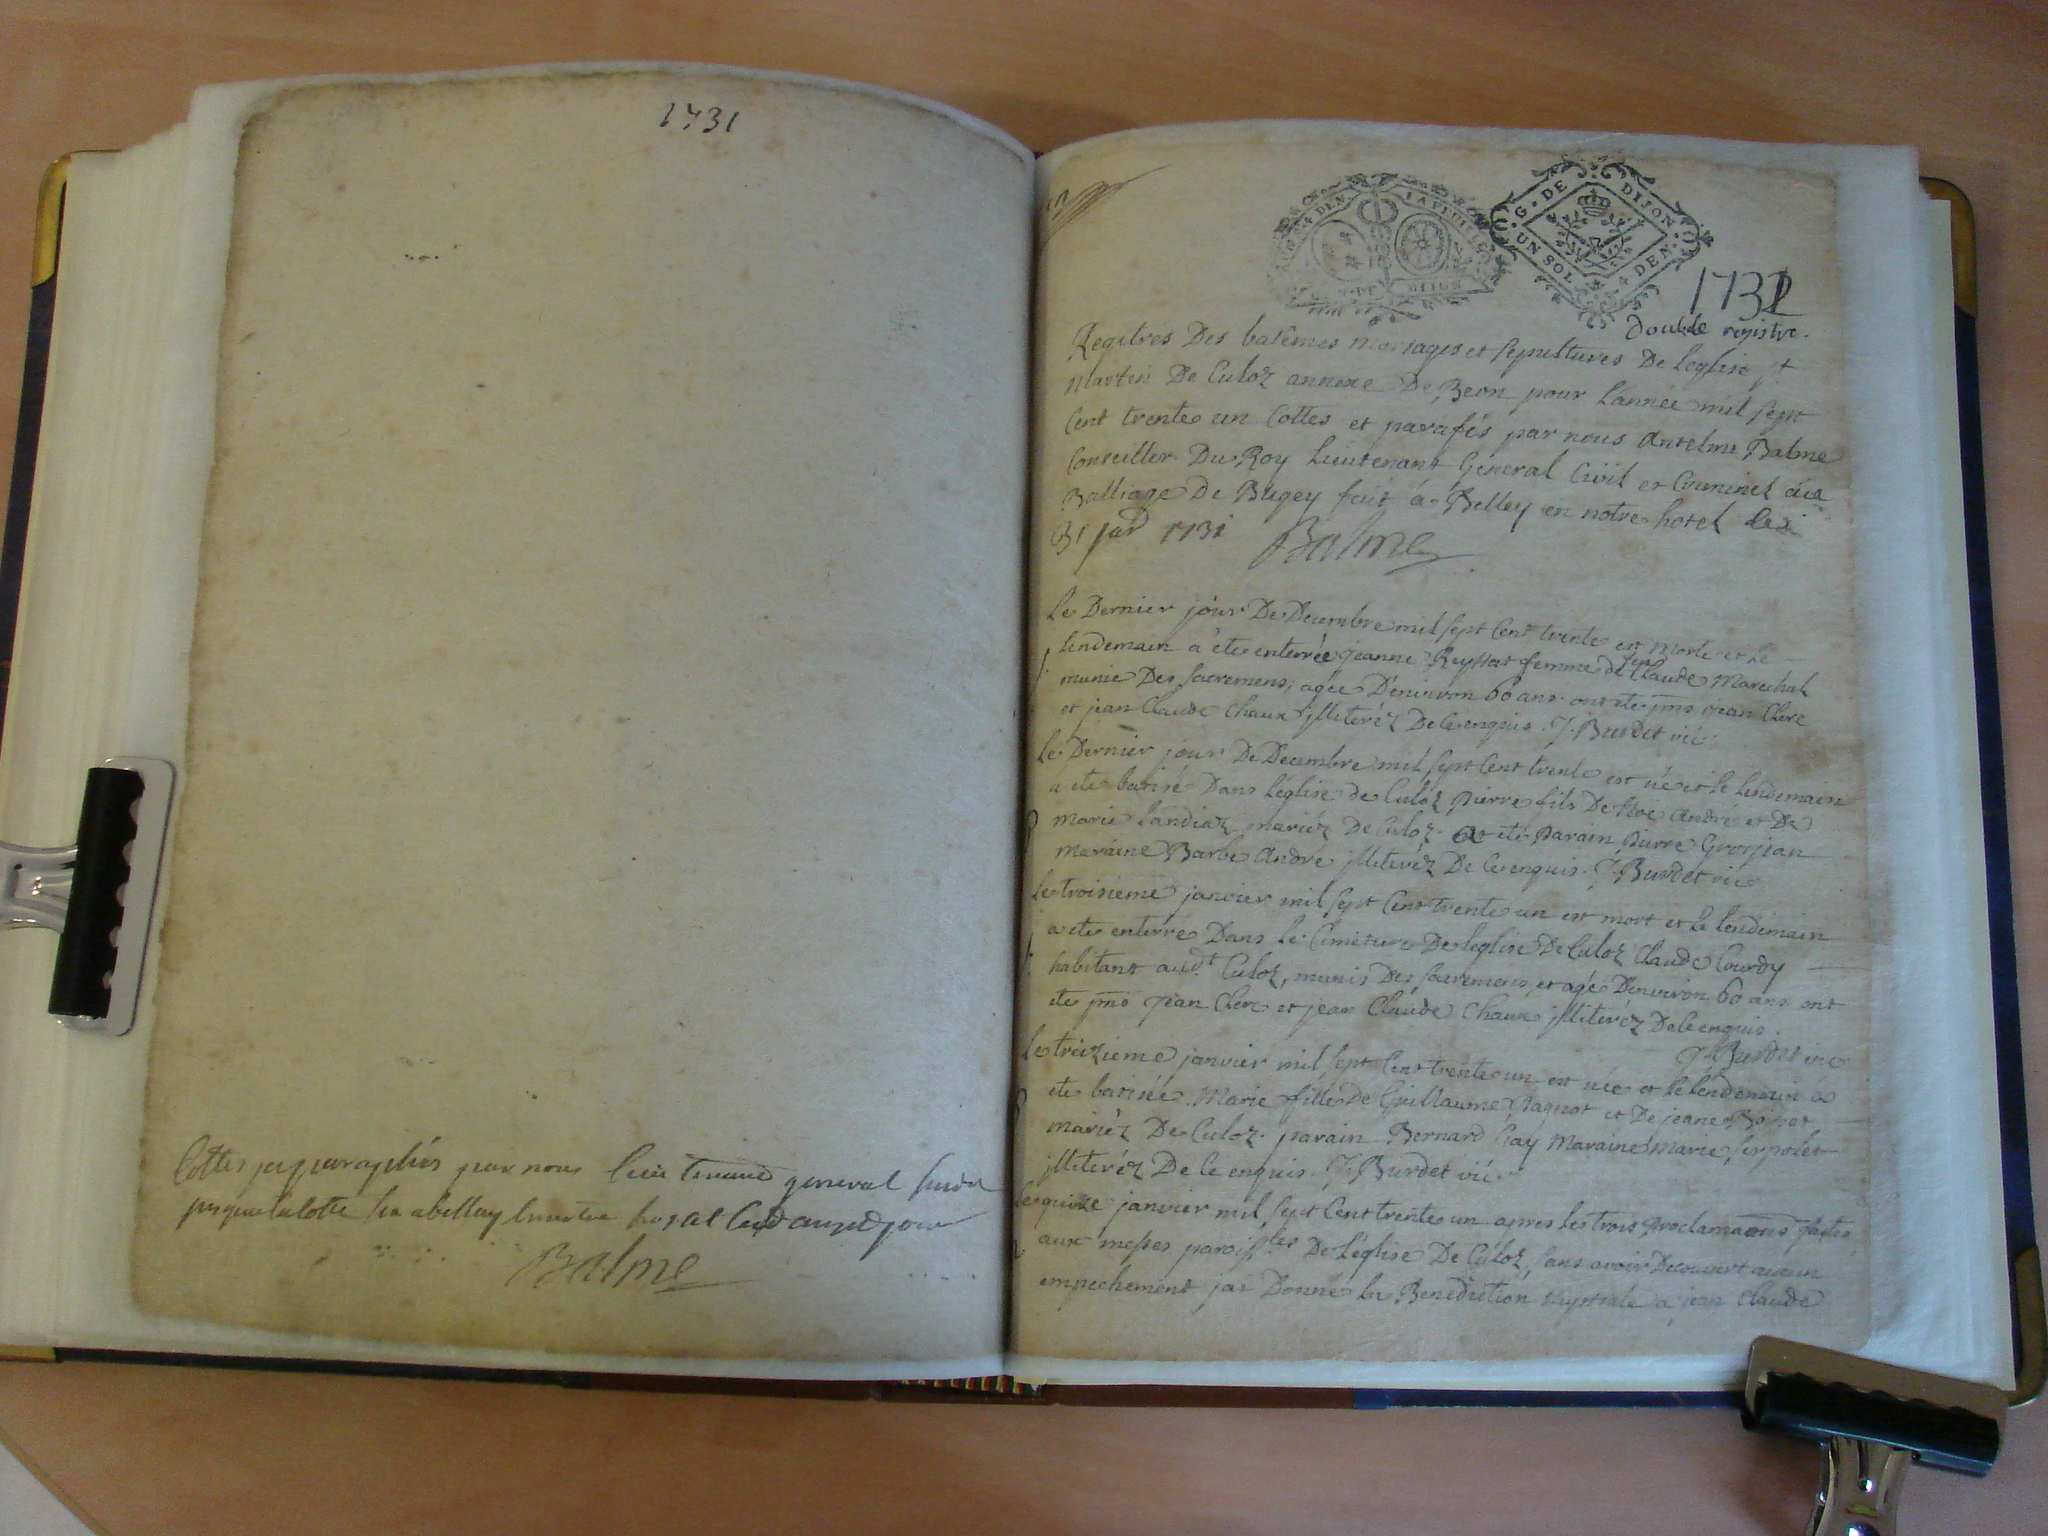 1731
Cottes et paraphés par nous lieutenant general
Balme
4 DEN.
DIJON
G. DE DIJON
UN SOL 4 DEN.
1731
double registre.
Regitres Des batêmes mariages et sepultures De leglise st
Martin De Culoz annexe De Beon pour l'année mil sept
Cent trente un Cottes et parafés par nous Antelme Balme
Conseiller Du Roy Lieutenant Général Civil et Criminel
Balliage De Bugey fait à Belley en notre hotel
31 1731 Balme
le Dernier jour De Decembre mil sept Cent trente est morte et le
lendemain a ete enterrée jeanne Reyssat femme de feu Claude Marechal
munie Des sacremens, agée D'environ 60 ans ont ete pns jean Clerc
et jean Claude Chaux jlliteréz De ce enquis. J. Burdet vic.
le Dernier jour De Decembre mil sept Cent trente est né et le lendemain
a ete batisé Dans l'église de Culoz Pierre fils De Noé André et De
marie Landiaz mariéz De Culoz. a ete Parain Pierre Grosjean
maraine Barbe André jlliteréz De ce enquis. J. Burdet vic
le troisieme janvier mil sept Cent trente un est mort et le lendemain
a ete enterré Dans le Cimetiere De leglise De Culoz Claude Courdy
habitant aud.t Culoz, munis Des sacremens, et agé D'environ 60 ans ont
ete pns jean Clerc et jean Claude Chaux jlliteréz De ce enquis.
J. Burdet vic
le treizieme janvier mil sept Cent trente un est née et le lendemain a
ete batisée Marie fille De Guillaume et De jeane
mariéz De Culoz. parain Bernard Gay Maraine marie Serpolet
jlliteréz De ce enquis. J. Burdet vic.
le quinze janvier mil sept Cent trente un apres les trois proclamaons faites
aux messes paroiss.les De l'église De Culoz, sans avoir Decouvert aucun
empechement jai Donné la Benediction nuptiale a jean Claude